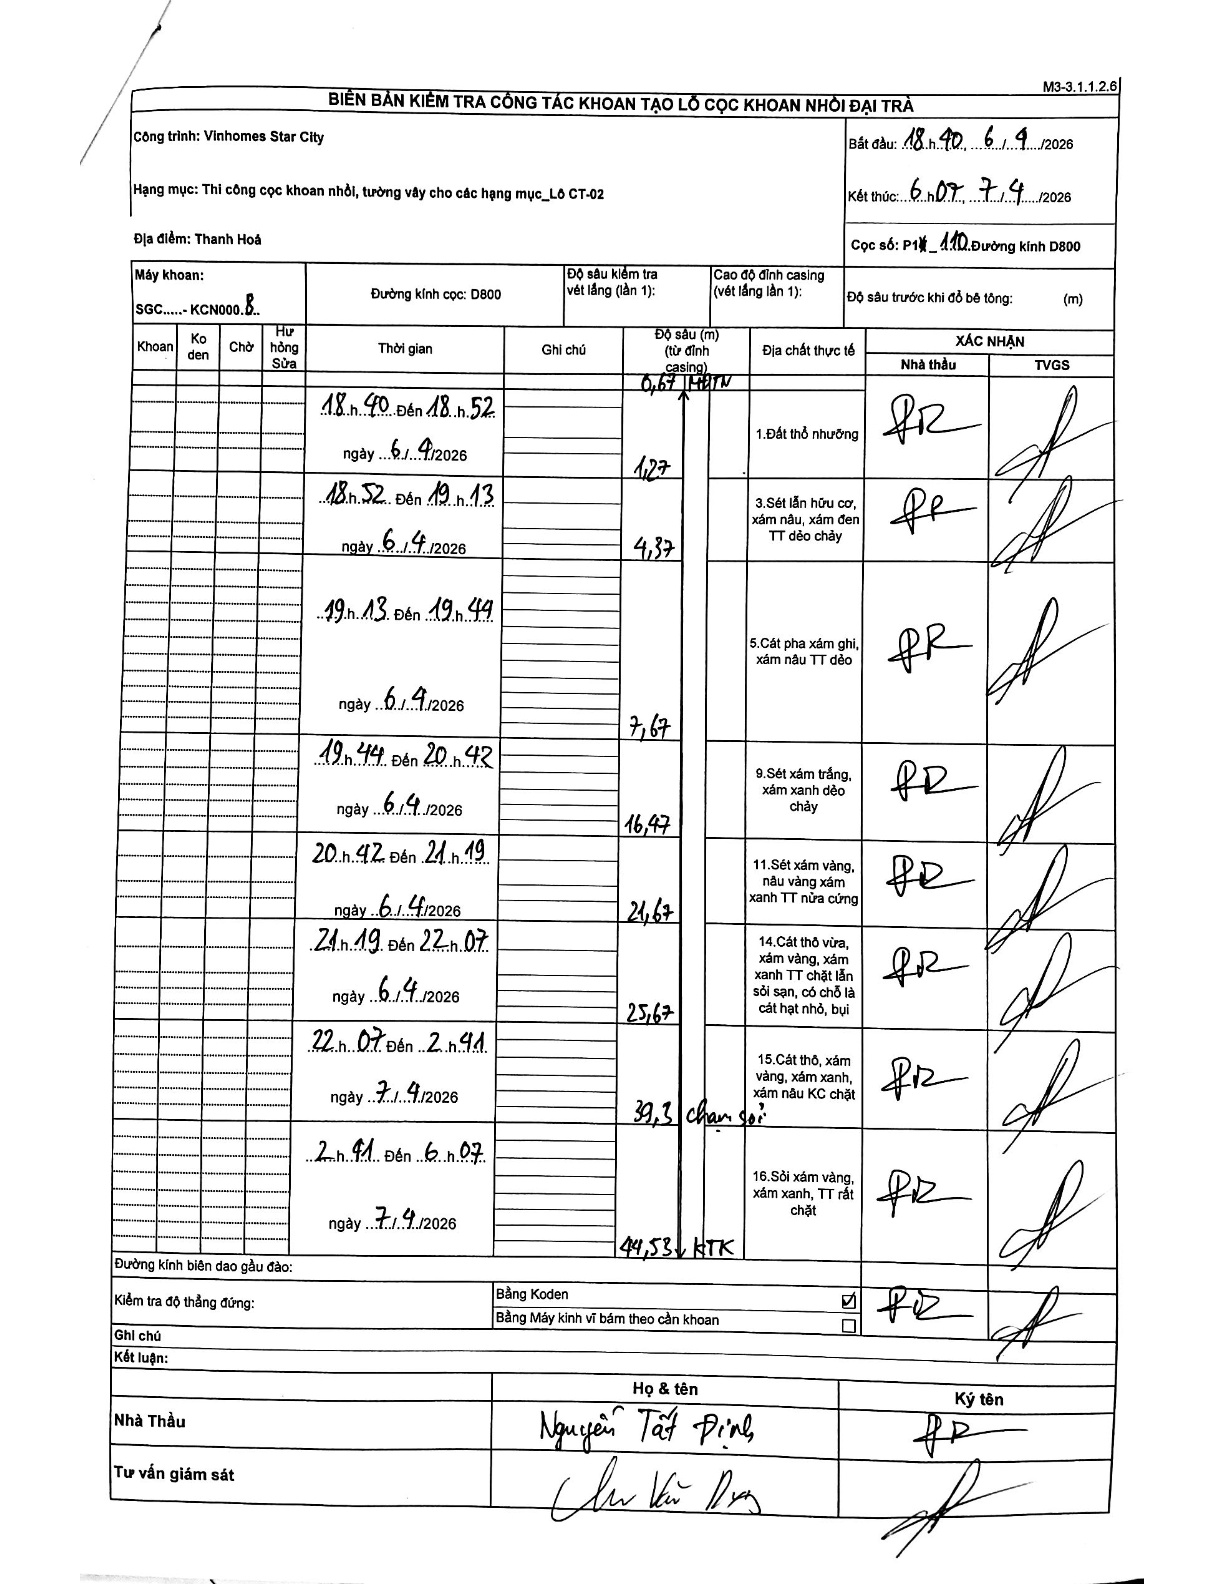 M3-3.1.1.2.6
BIÊN BẢN KIỂM TRA CÔNG TÁC KHOAN TẠO LỖ CỌC KHOAN NHỒI ĐẠI TRÀ
Công trình: Vinhomes Star City
Bắt đầu: 18.h.40, ...6.../...4.../2026
Hạng mục: Thi công cọc khoan nhồi, tường vây cho các hạng mục_Lô CT-02
Kết thúc:...6..h07, ...7../..4...../2026
Địa điểm: Thanh Hoá
Cọc số: P1 _110.Đường kính D800
Máy khoan:
SGC.....- KCN000.8..
Đường kính cọc: D800
Độ sâu kiểm tra
vét lắng (lần 1):
Cao độ đỉnh casing
(vét lắng lần 1):
Độ sâu trước khi đổ bê tông: (m)
Khoan
Ko
den
Chờ
Hư
hỏng
Sửa
Thời gian
Ghi chú
Độ sâu (m)
(từ đỉnh
casing)
Địa chất thực tế
XÁC NHẬN
Nhà thầu
TVGS
0,67 MĐTN
18.h.40 Đến 18.h.52
ngày ...6../..4./2026
1,27
1.Đất thổ nhưỡng
18.h.52. Đến 19.h.13
ngày ..6../.4../2026
4,37
3.Sét lẫn hữu cơ,
xám nâu, xám đen
TT dẻo chảy
19.h.13. Đến 19.h.44
ngày ..6./..4./2026
7,67
5.Cát pha xám ghi,
xám nâu TT dẻo
19.h.44 Đến 20.h.42
ngày ..6./.4../2026
16,47
9.Sét xám trắng,
xám xanh dẻo
chảy
20.h.42 Đến .21.h.19
ngày ..6./..4../2026
21,67
11.Sét xám vàng,
nâu vàng xám
xanh TT nửa cứng
.21.h.19. Đến 22.h.07
ngày ..6./..4../2026
25,67
14.Cát thô vừa,
xám vàng, xám
xanh TT chặt lẫn
sỏi sạn, có chỗ là
cát hạt nhỏ, bụi
22.h..07 Đến ..2.h.41.
ngày ..7./..4../2026
39,3 chạm sỏi
15.Cát thô, xám
vàng, xám xanh,
xám nâu KC chặt
..2.h.41.. Đến ..6..h.07.
ngày ..7./..4../2026
44,53 KTK
16.Sỏi xám vàng,
xám xanh, TT rất
chặt
Đường kính biên dao gầu đào:
Kiểm tra độ thẳng đứng:
Bằng Koden ☑
Bằng Máy kinh vĩ bám theo cần khoan ☐
Ghi chú
Kết luận:
Họ & tên
Ký tên
Nhà Thầu
Nguyễn Tất Định
Tư vấn giám sát
Chu Văn